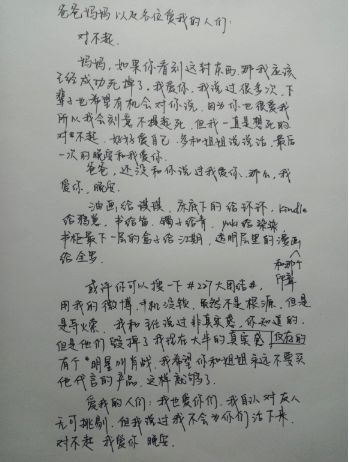 爸爸妈妈以及各位爱我的人们:
对不起.
妈妈,如果你看到这封东西,那我应该
已经成功死掉了,我爱你,我说过很多次,下
辈子也希望有机会对你说.因为你也很爱我
所以我会刻意不提起死.但我一直是想死的
对不起.好好爱自己.多和姐姐说说话.最后
一次的晚安和我爱你.
爸爸,还没和你说过我爱你.那么,我
爱你,晚安.
油画给 床底下的给 kindle
给 书给 镯子给青.
书柜最下一层的盒子给江 透明层里的漫画
给 和那个印章
或许你可以搜一下#227大团结#,
用我的微博.手机没锁.虽然不是根源.但是
是导火索.我和主任说过非真实感,你知道的.
但是他们毁掉了我现在大半的真实感 仅存的
有个"明星"叫肖战.我希望你和姐姐永远不要买
他代言的产品.这样就够了.
爱我的人们:我也爱你们,我自认对友人
无可挑剔.但我说过我不会为你们活下来.
对不起 我爱你 晚安.